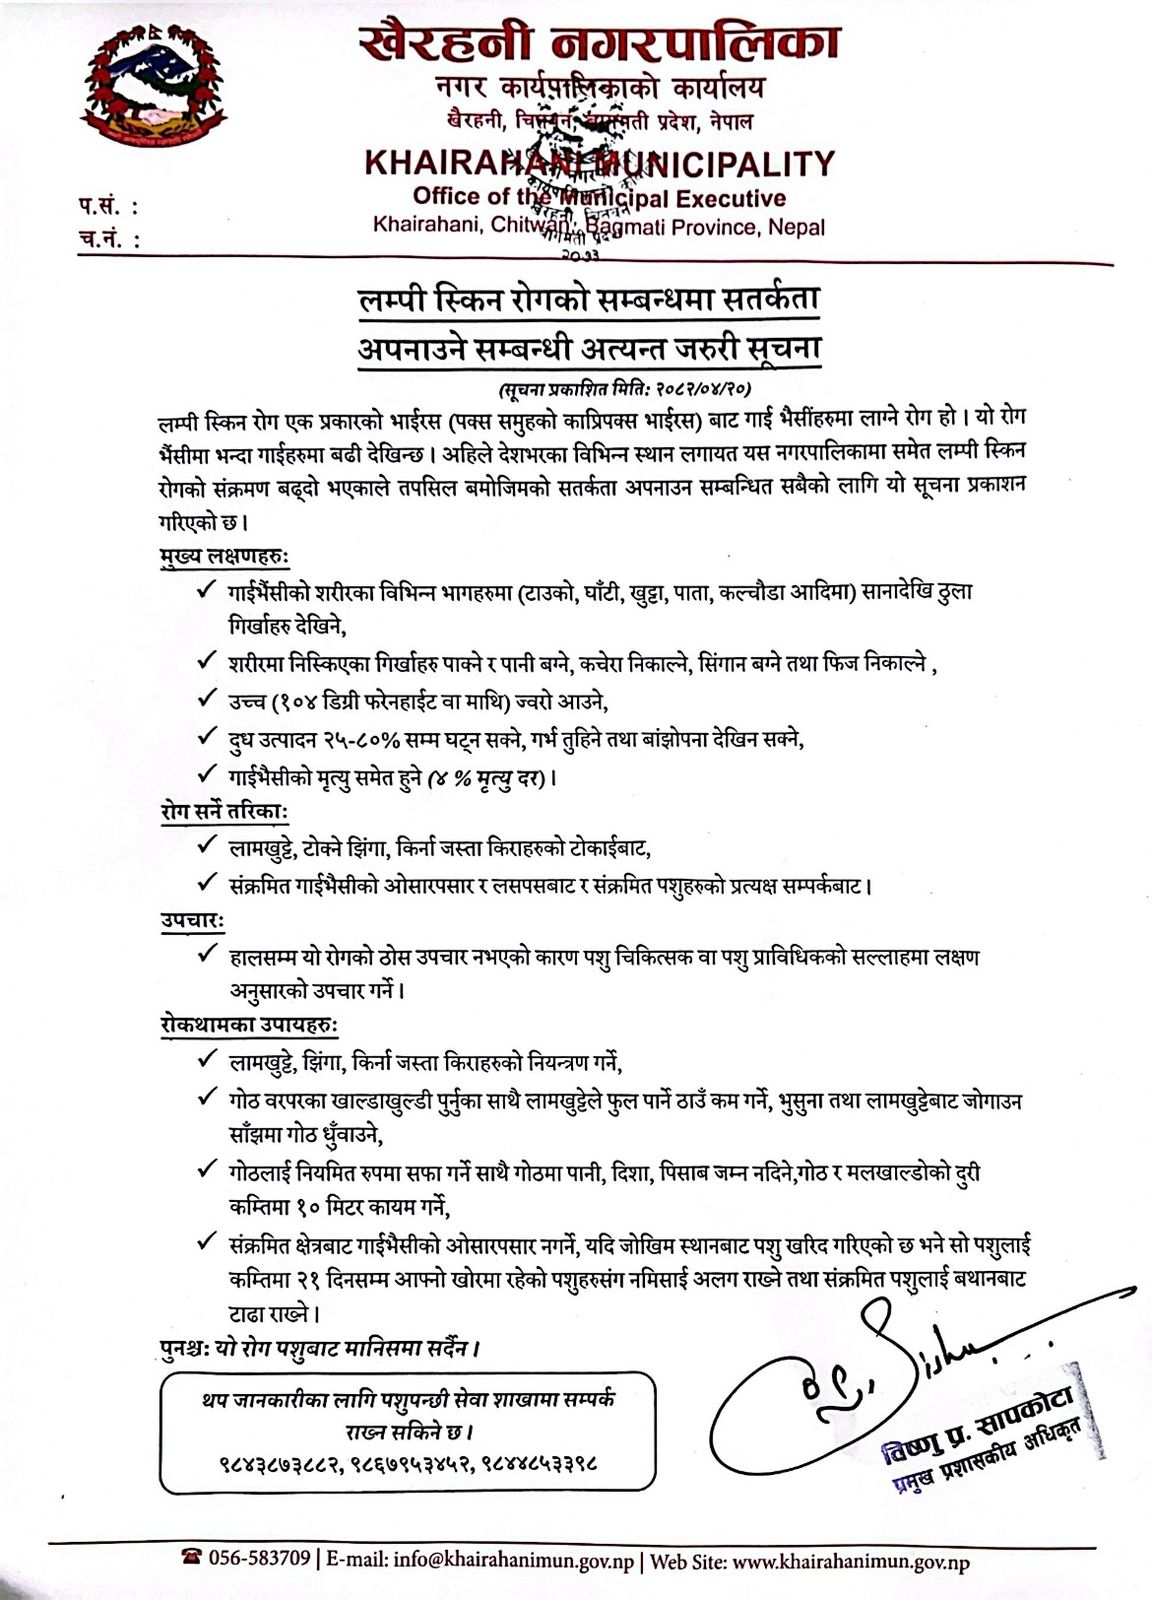 खैरहनी नगरपालिका
नगर कार्यपालिकाको कार्यालय
खैरहनी, चितवन, बागमती प्रदेश, नेपाल
KHAIRAHANI MUNICIPALITY
Office of the Municipal Executive
Khairahani, Chitwan, Bagmati Province, Nepal
प.सं. :
च.नं. :
२०७३
लम्पी स्किन रोगको सम्बन्धमा सतर्कता
अपनाउने सम्बन्धी अत्यन्त जरुरी सूचना
(सूचना प्रकाशित मिति: २०८२/०४/२०)
लम्पी स्किन रोग एक प्रकारको भाईरस (पक्स समुहको काप्रिपक्स भाईरस) बाट गाई भैसींहरुमा लाग्ने रोग हो । यो रोग
भैंसीमा भन्दा गाईहरुमा बढी देखिन्छ । अहिले देशभरका विभिन्न स्थान लगायत यस नगरपालिकामा समेत लम्पी स्किन
रोगको संक्रमण बढ्दो भएकाले तपसिल बमोजिमको सतर्कता अपनाउन सम्बन्धित सबैको लागि यो सूचना प्रकाशन
गरिएको छ ।
मुख्य लक्षणहरु:
✓ गाईभैंसीको शरीरका विभिन्न भागहरुमा (टाउको, घाँटी, खुट्टा, पाता, कल्चौडा आदिमा) सानादेखि ठुला
गिर्खाहरु देखिने,
✓ शरीरमा निस्किएका गिर्खाहरु पाक्ने र पानी बग्ने, कचेरा निकाल्ने, सिंगान बग्ने तथा फिज निकाल्ने ,
✓ उच्च (१०४ डिग्री फरेनहाईट वा माथि) ज्वरो आउने,
✓ दुध उत्पादन २५-८०% सम्म घट्न सक्ने, गर्भ तुहिने तथा बांझोपना देखिन सक्ने,
✓ गाईभैसीको मृत्यु समेत हुने (४ % मृत्यु दर) ।
रोग सर्ने तरिका:
✓ लामखुट्टे, टोक्ने झिंगा, किर्ना जस्ता किराहरुको टोकाईबाट,
✓ संक्रमित गाईभैसीको ओसारपसार र लसपसबाट र संक्रमित पशुहरुको प्रत्यक्ष सम्पर्कबाट ।
उपचार:
✓ हालसम्म यो रोगको ठोस उपचार नभएको कारण पशु चिकित्सक वा पशु प्राविधिकको सल्लाहमा लक्षण
अनुसारको उपचार गर्ने ।
रोकथामका उपायहरु:
✓ लामखुट्टे, झिंगा, किर्ना जस्ता किराहरुको नियन्त्रण गर्ने,
✓ गोठ वरपरका खाल्डाखुल्डी पुर्नुका साथै लामखुट्टेले फुल पार्ने ठाउँ कम गर्ने, भुसुना तथा लामखुट्टेबाट जोगाउन
साँझमा गोठ धुँवाउने,
✓ गोठलाई नियमित रुपमा सफा गर्ने साथै गोठमा पानी, दिशा, पिसाब जम्न नदिने,गोठ र मलखाल्डोको दुरी
कम्तिमा १० मिटर कायम गर्ने,
✓ संक्रमित क्षेत्रबाट गाईभैसीको ओसारपसार नगर्ने, यदि जोखिम स्थानबाट पशु खरिद गरिएको छ भने सो पशुलाई
कम्तिमा २१ दिनसम्म आफ्नो खोरमा रहेको पशुहरुसंग नमिसाई अलग राख्ने तथा संक्रमित पशुलाई बथानबाट
टाढा राख्ने ।
पुनश्च: यो रोग पशुबाट मानिसमा सर्दैन ।
थप जानकारीका लागि पशुपन्छी सेवा शाखामा सम्पर्क
राख्न सकिने छ ।
९८४३८७३८८२, ९८६७९५३४५२, ९८४४८५३३९८
विष्णु प्र. सापकोटा
प्रमुख प्रशासकीय अधिकृत
☎ 056-583709 | E-mail: info@khairahanimun.gov.np | Web Site: www.khairahanimun.gov.np